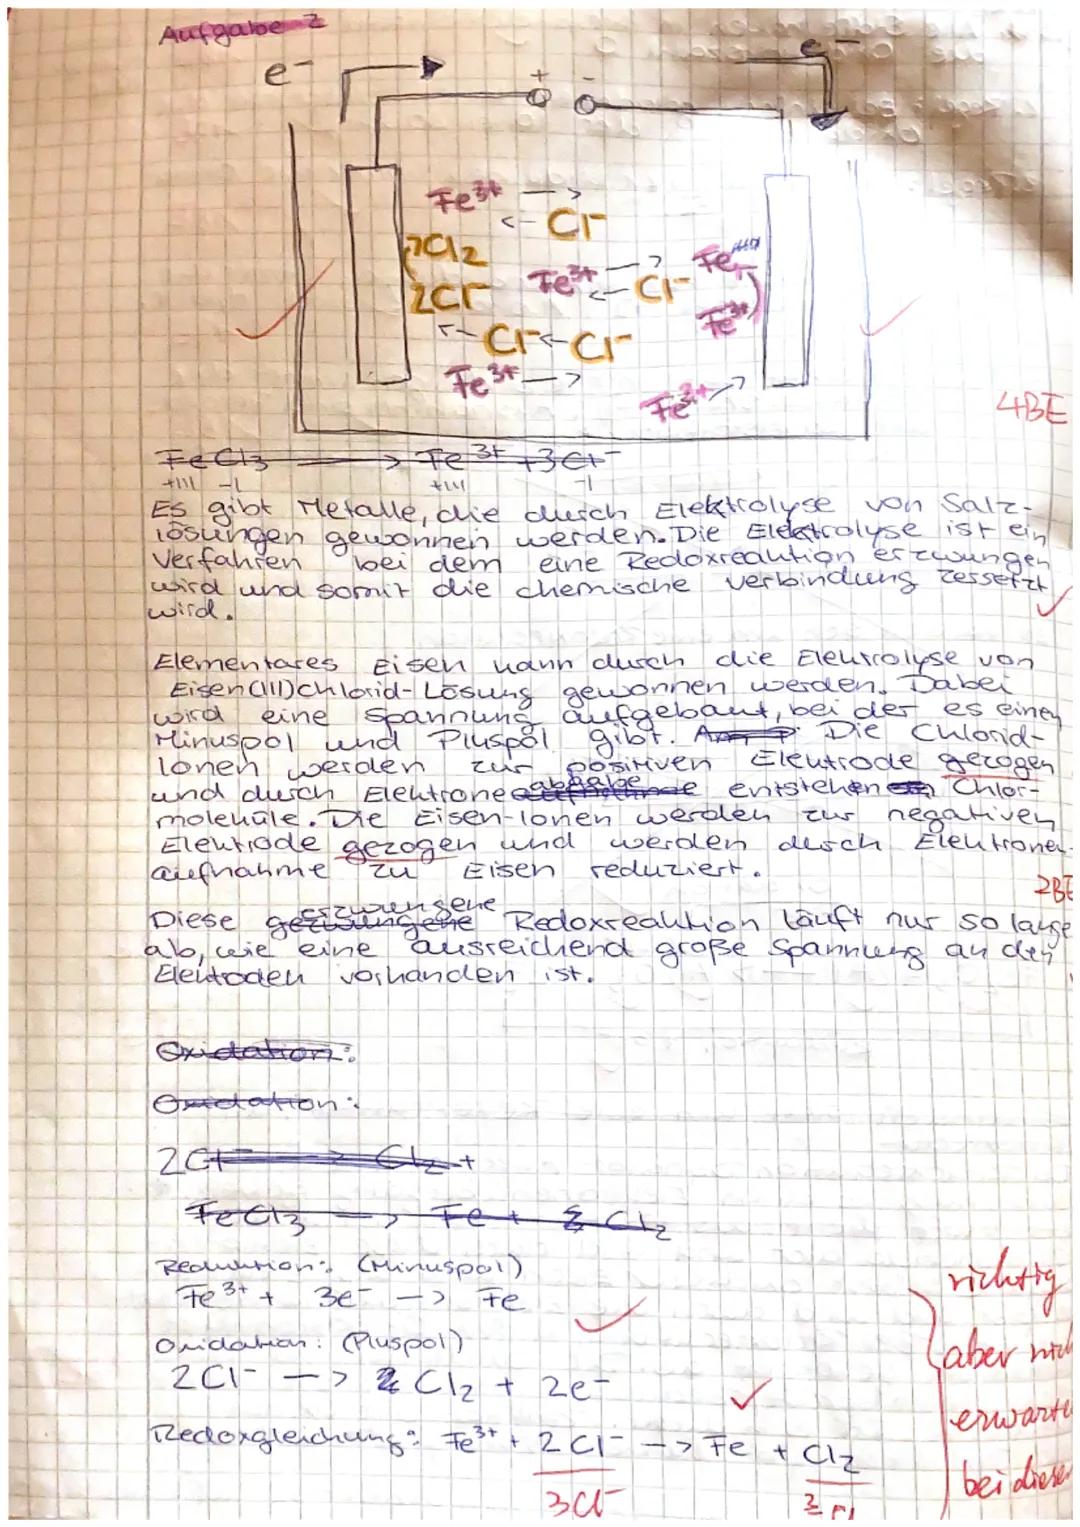 Aufgabe 2
e-
e-
+ -
Fe3+ -->
<- Cl-
Cl2
2Cl-
Fe3+ -->
<- Cl-
Fe
Fe3+
<- Cl- <- Cl-
Fe3+ -->
Fe3+
4BE
FeCl3 --> Fe3+ + 3Cl-
+III -I +III -I
Es gibt Metalle, die durch Elektrolyse von Salz-
lösungen gewonnen werden. Die Elektrolyse ist ein
Verfahren bei dem eine Redoxreaktion erzwungen
wird und somit die chemische Verbindung zersetzt
wird.
Elementares Eisen kann durch die Elektrolyse von
Eisen(III)chlorid-Lösung gewonnen werden. Dabei
wird eine Spannung aufgebaut, bei der es einen
Minuspol und Pluspol gibt. Die Chlorid-
Ionen werden zur positiven Elektrode gezogen
und durch Elektronenabgabe entstehen Chlor-
moleküle. Die Eisen-Ionen werden zur negativen
Elektrode gezogen und werden durch Elektronen-
aufnahme zu Eisen reduziert.
2BE
Diese gezwungene erzwungene Redoxreaktion läuft nur so lange
ab, wie eine ausreichend große Spannung an den
Elektoden vorhanden ist.
Oxidation:
Oxidation:
2Cl- --> Cl2 +
FeCl3 --> Fe + Cl2
Reduktion: (Minuspol)
Fe3+ + 3e- --> Fe
Oxidation: (Pluspol)
2Cl- --> Cl2 + 2e-
Redoxgleichung: Fe3+ + 2Cl- --> Fe + Cl2
3Cl-
richtig
aber
bei